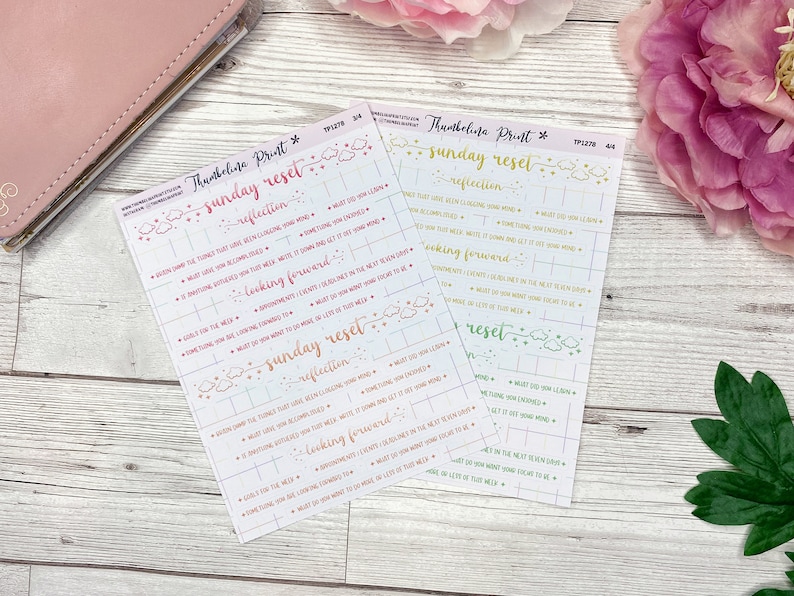 WWW.THUMBELINAPRINT.ETSY.COM
INSTAGRAM @THUMBELINAPRINT
Thumbelina Print
TP1278 3/4
sunday reset
reflection
WHAT DID YOU LEARN
BRAIN DUMP THE THINGS THAT HAVE BEEN CLOGGING YOUR MIND
WHAT HAVE YOU ACCOMPLISHED
SOMETHING YOU ENJOYED
IS ANYTHING BOTHERED YOU THIS WEEK. WRITE IT DOWN AND GET IT OFF YOUR MIND
looking forward
APPOINTMENTS / EVENTS / DEADLINES IN THE NEXT SEVEN DAYS
GOALS FOR THE WEEK
WHAT DO YOU WANT YOUR FOCUS TO BE
SOMETHING YOU ARE LOOKING FORWARD TO
WHAT DO YOU WANT TO DO MORE OR LESS OF THIS WEEK
sunday reset
reflection
WHAT DID YOU LEARN
BRAIN DUMP THE THINGS THAT HAVE BEEN CLOGGING YOUR MIND
WHAT HAVE YOU ACCOMPLISHED
SOMETHING YOU ENJOYED
IS ANYTHING BOTHERED YOU THIS WEEK. WRITE IT DOWN AND GET IT OFF YOUR MIND
looking forward
APPOINTMENTS / EVENTS / DEADLINES IN THE NEXT SEVEN DAYS
GOALS FOR THE WEEK
WHAT DO YOU WANT YOUR FOCUS TO BE
SOMETHING YOU ARE LOOKING FORWARD TO
WHAT DO YOU WANT TO DO MORE OR LESS OF THIS WEEK
Thumbelina Print
TP1278 4/4
sunday reset
reflection
WHAT DID YOU LEARN
CLOGGING YOUR MIND
ACCOMPLISHED
SOMETHING YOU ENJOYED
THIS WEEK. WRITE IT DOWN AND GET IT OFF YOUR MIND
looking forward
APPOINTMENTS / EVENTS / DEADLINES IN THE NEXT SEVEN DAYS
WHAT DO YOU WANT YOUR FOCUS TO BE
MORE OR LESS OF THIS WEEK
reset
WHAT DID YOU LEARN
YOUR MIND
SOMETHING YOU ENJOYED
DOWN AND GET IT OFF YOUR MIND
IN THE NEXT SEVEN DAYS
WHAT DO YOU WANT YOUR FOCUS TO BE
MORE OR LESS OF THIS WEEK